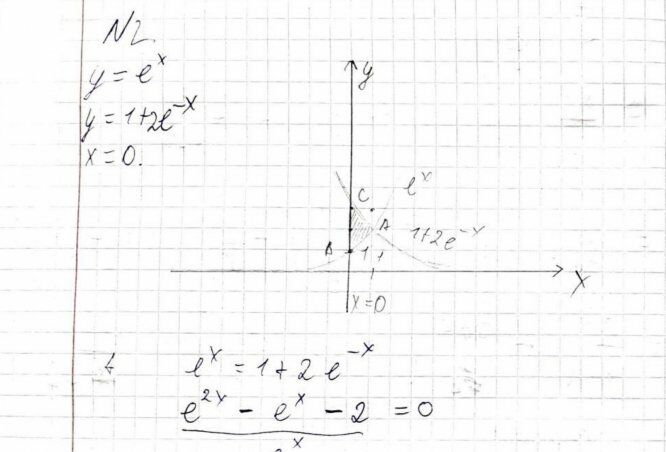 N2.
y = e^x
y = 1+2e^{-x}
x = 0.
y
C
e^x
A
1+2e^{-x}
1 1
x
x=0
e^x = 1 + 2 e^{-x}
e^{2x} - e^x - 2 = 0
e^x